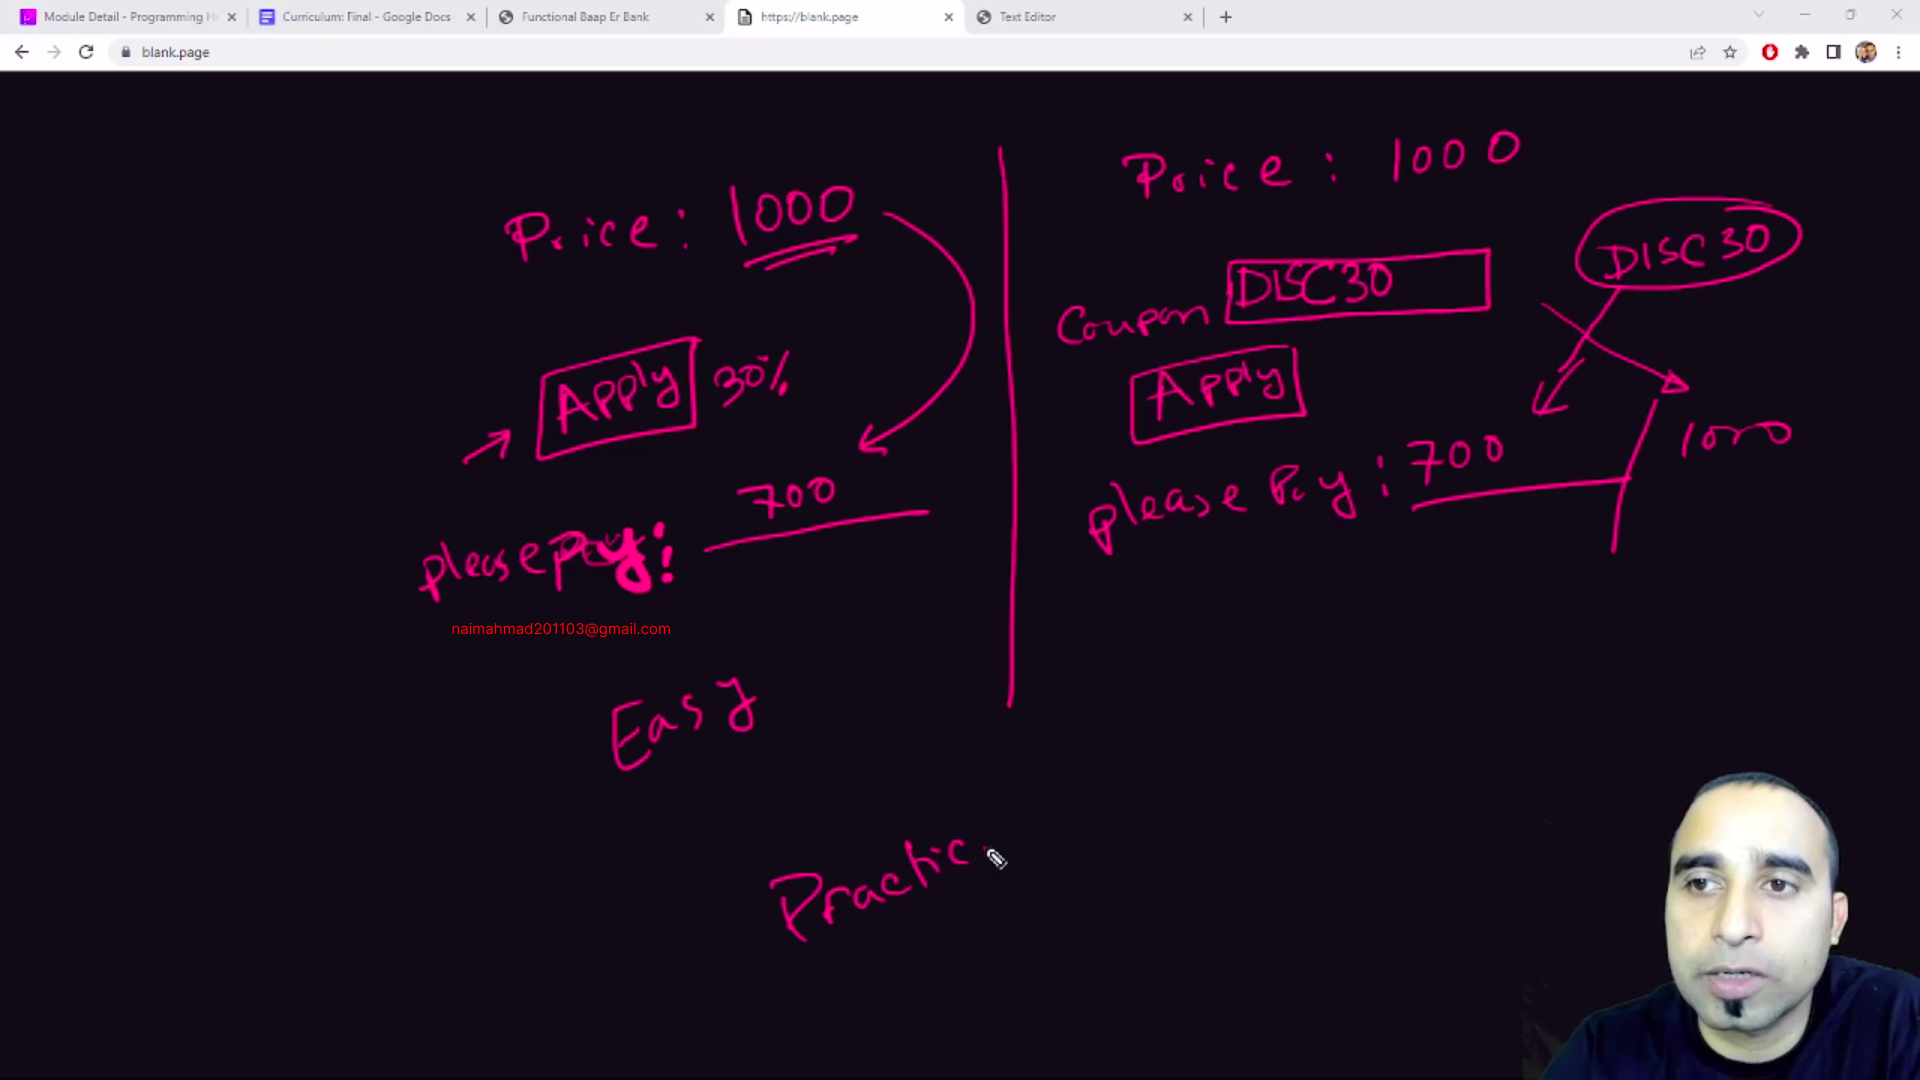 Module Detail - Programming He
Curriculum: Final - Google Docs
Functional Baap Er Bank
https://blank.page
Text Editor
blank.page
Price: 1000
Apply 30%
700
please Pay:
naimahmad201103@gmail.com
Easy
Practic
Price: 1000
DISC30
Coupon DISC30
Apply
1000
please Pay: 700